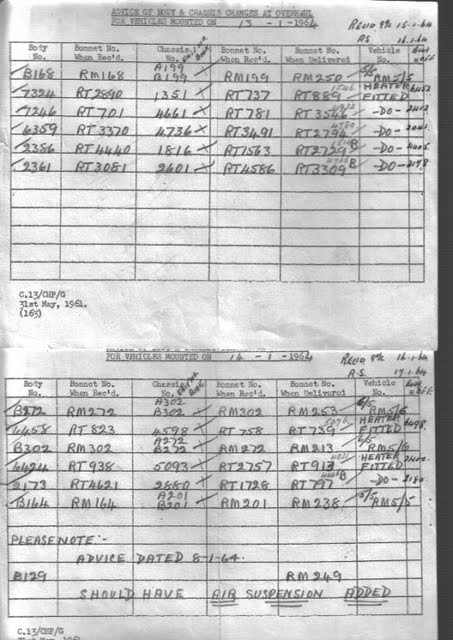 ADVICE OF BODY & CHASSIS CHANGES AT OVERHAUL
FOR VEHICLES MOUNTED ON 13 - 1 - 1964
15-1-64
RS. 16.1.64
Body No. Bonnet No. When Rec'd. Chassis No. Bonnet No. When Rec'd. Bonnet No. When Delivered Vehicle No.
B168 RM168 A199 B199 RM199 RM250 5/5 RM5/5
7324 RT2890 1351 RT737 RT889 HEATER FITTED
7246 RT701 4661 RT781 RT3546 -DO-
6359 RT3370 4736 RT3491 -DO-
2386 RT4440 1816 RT1563 -DO-
2361 RT3081 2601 RT4586 RT3309 -DO-
C.13/CHP/G
31st May, 1961.
(165)
FOR VEHICLES MOUNTED ON 14 - 1 - 1964
16-1-64
R.S. 17.1.64
Body No. Bonnet No. When Rec'd. Chassis No. Bonnet No. When Rec'd. Bonnet No. When Delivered Vehicle No.
B272 RM272 A302 B302 RM302 RM253 6/5 RM5/6
6458 RT823 4598 RT758 HEATER FITTED
B302 RM302 A272 B272 RM272 RM213 6/5 RM5/6
6424 RT938 5093 RT2757 HEATER FITTED
2173 RT4621 2680 RT1728 RT797 -DO-
B164 RM164 A201 B201 RM201 RM238 5/5 RM5/5
PLEASE NOTE:-
ADVICE DATED 8-1-64.
B129 RM249
SHOULD HAVE AIR SUSPENSION ADDED
C.13/CHP/G